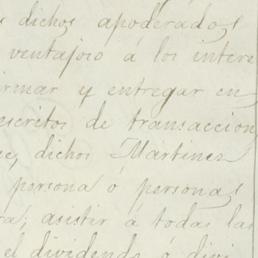 dichos apoderados
ventajoso á los intere
irmar y entregar en
escritos de transaccion
e, dichos Martinez
persona ó personas
ra; asistir á todas las
el dividendo ó divi